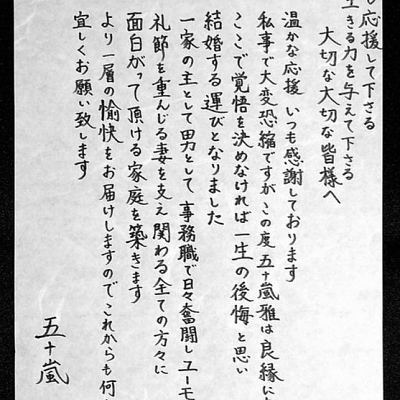 応援して下さる
生きる力を与えて下さる
大切な大切な皆様へ
温かな応援 いつも感謝しております
私事で大変恐縮ですが この度 五十嵐雅は良縁に
ここで覚悟を決めなければ一生の後悔と思い
結婚する運びとなりました
一家の主として男として 事務職で日々奮闘しユーモ
礼節を重んじる妻を支え 関わる全ての方々に
面白がって頂ける家庭を築きます
より一層の愉快をお届けしますので これからも何
宜しくお願い致します
五十嵐